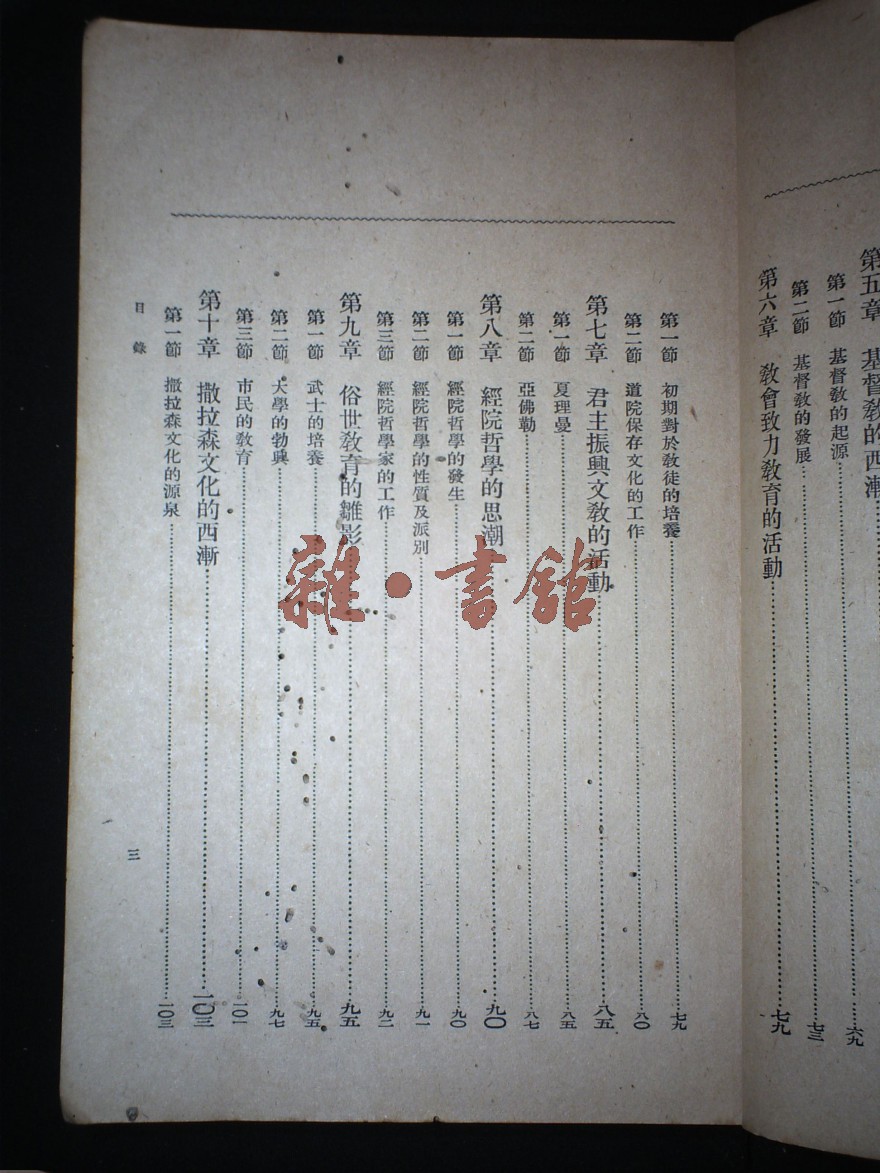 第五章 基督敎的西漸
第一節 基督敎的起源……六九
第二節 基督敎的發展……七三
第六章 敎會致力敎育的活動……七九
第一節 初期對於敎徒的培養……七九
第二節 道院保存文化的工作……八〇
第七章 君主振興文敎的活動……八五
第一節 夏理曼……八五
第二節 亞佛勒……八七
第八章 經院哲學的思潮……九〇
第一節 經院哲學的發生……九〇
第二節 經院哲學的性質及派別……九一
第三節 經院哲學家的工作……九二
第九章 俗世敎育的雛影……九五
第一節 武士的培養……九五
第二節 大學的勃興……九七
第三節 市民的敎育……一〇一
第十章 撒拉森文化的西漸……一〇三
第一節 撒拉森文化的源泉……一〇三
目錄
三
雜·書館